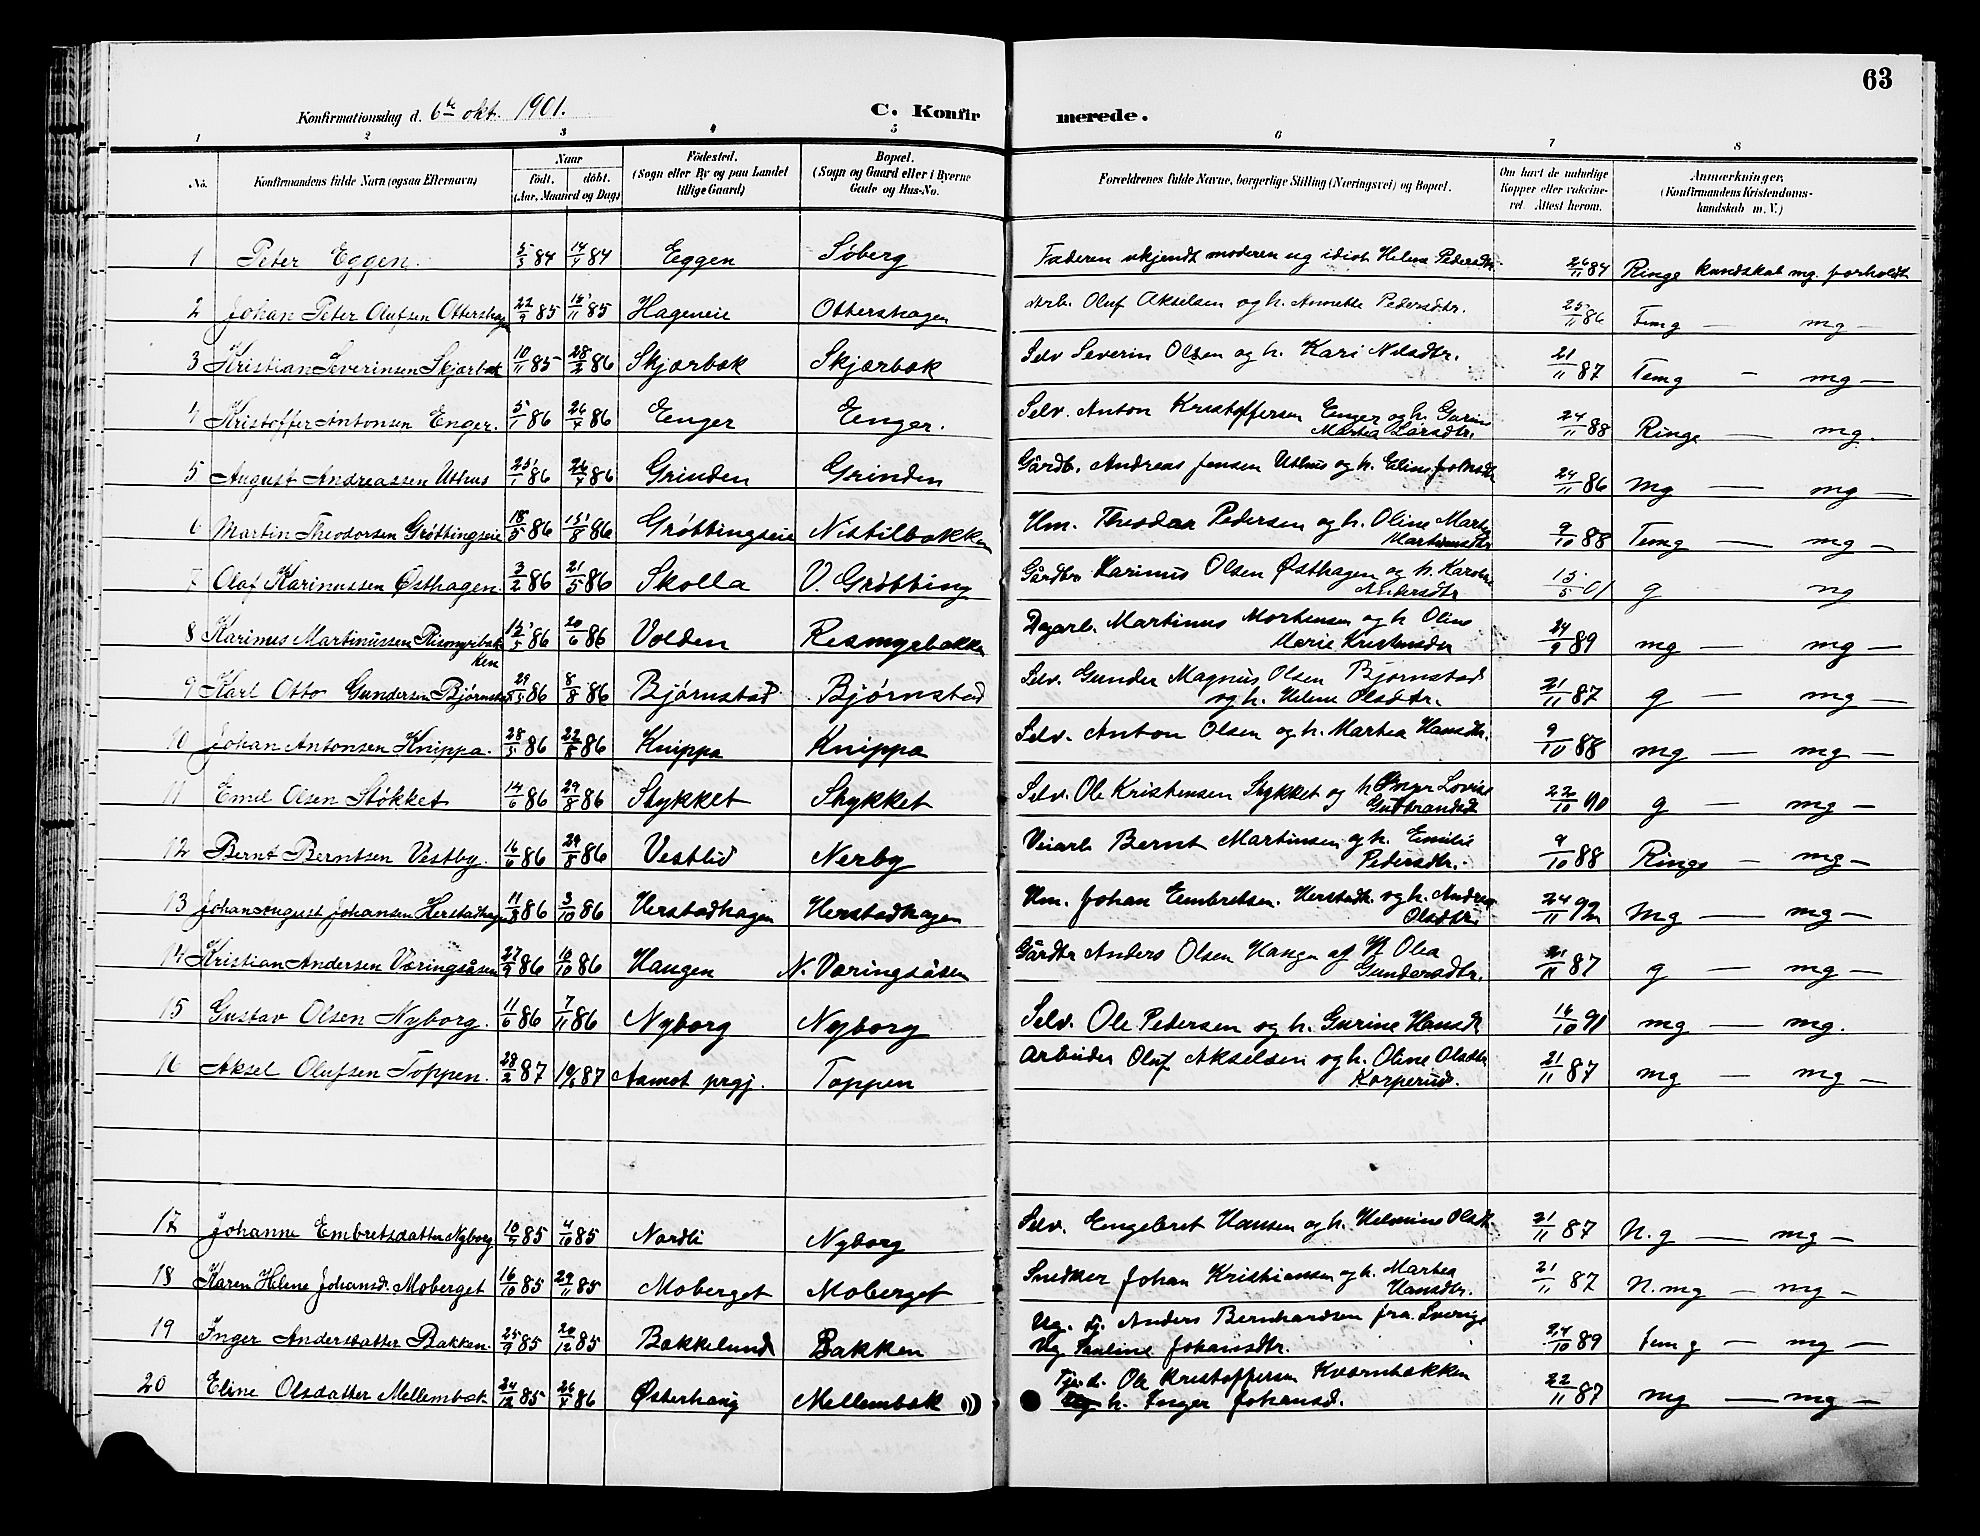 63
Konfirmationsdag d. 6te okt. 1901. C. Konfirmerede.
1 2 3 4 5 6 7 8
No. Konfirmandens fulde Navn (ogsaa Efternavn) Naar født. døbt. (Aar, Maaned og Dag) Fødested. (Sogn eller By og paa Landet tillige Gaard) Bopæl. (Sogn og Gaard eller i Byerne Gade og Hus-No. Forældrenes fulde Navne, borgerlige Stilling (Næringsvei) og Bopæl. Om havt de naturlige Kopper eller vakcineret. Attest herom. Anmærkninger. (Konfirmandens Kristendomskundskab m. V.)
1 Peter Eggen. 5/3 84 14/4 84 Eggen Søberg Faderen ukjendt moderen ug idiot Helene Pedersdtr. 26/11 84 Ringe kundskab mg. forholdt
2 Johan Peter Olufsen Ottershagen 22/9 85 15/11 85 Hageneie Ottershagen Arb. Oluf Akselsen og h. Annette Pedersdtr. 25/11 86 Temg — mg —
3 Kristian Severinsen Skjærbæk 10/11 85 28/2 86 Skjærbæk Skjærbæk Selv Severin Olsen og h. Kari Nilsdtr. 21/11 87 Temg — mg —
4 Kristoffer Antonsen Enger. 5/1 86 26/4 86 Enger Enger. Selv. Anton Kristoffersen Enger og h. Gurine
Martea Larsdtr. 24/11 88 Ringe — mg.
5 August Andreassen Uthus 25/1 86 26/4 86 Grinden Grinden Gårdb. Andreas Jensen Uthus og h. Eline Johnsdtr 24/11 86 mg — mg —
6 Martin Theodorsen Grøttingseie 18/5 86 15/8 86 Grøttingseie Nistilbakken Hm. Theodor Pedersen og h. Oline Marte
Martinsdtr 9/10 88 Temg — mg —
7 Olaf Karinussen Østhagen. 3/2 86 21/5 86 Skolla V. Grøtting Gårdbr Karinus Olsen Østhagen og h. Karoline
Andersdtr 15/5 01 g ng
8 Karinus Martinussen Rismyrbak
ken 15/5 86 20/6 86 Volden Resmyrbakken Dagarb. Martinus Mortensen og h. Oline
Marie Kristensdtr 24/9 89 mg — mg —
9 Karl Otto Gundersen Bjørnstad 29/5 86 8/8 86 Bjørnstad Bjørnstad Selv. Gunder Magnus Olsen Bjørnstad
og h. Helene Olsdtr. 21/11 87 g — mg —
10 Johan Antonsen Knippa. 28/5 86 22/8 86 Knippa Knippa Selv. Anton Olsen og h. Martea Hansdtr. 9/10 88 mg — mg —
11 Emil Olsen Støkket 14/6 86 29/8 86 Stykket Stykket Selv. Ole Kristensen Stykket og h. Inger Lovise
Gudbrandsd 22/10 90 g — mg —
12 Bernt Berntsen Vestby. 16/6 86 29/8 86 Vestlid Nerby Veiarb Bernt Martinsen og h. Emilie
Pedersdtr. 9/10 88 Ringe — mg —
13 Johan August Johansen Herstadhagen 11/8 86 3/10 86 Herstadhagen Herstadhagen Hm. Johan Embretsen. Herstadh. og h. Andrea
Olsdtr. 24/11 92 Mg — mg —
14 Kristian Andersen Væringsåsen 27/9 86 10/10 86 Haugen N. Væringsåsen Gårdbr Anders Olsen Haugen af H Olea
Gundersdtr. 21/11 87 g — mg —
15 Gustav Olsen Nyborg. 11/6 86 7/11 86 Nyborg Nyborg Selv. Ole Pedersen og h. Gurine Hansdt 16/10 91 mg — mg.
16 Aksel Olufsen Toppen. 28/2 87 10/4 87 Aamot prgj. Toppen Arbeider Oluf Akselsen og h. Oline Olsdtr
Korperud. 21/11 87 mg — mg —
17 Johanne Embretsdatter Nyborg 10/7 85 4/10 85 Nordli Nyborg Selv. Engebret Hansen og h. Helmine Olsdt. 21/11 87 N.g — mg —
18 Karen Helene Johansd. Moberget 16/10 85 29/11 85 Moberget Moberget Snedker Johan Kristiansen og h. Martea
Hansdtr. 21/11 87 N.mg — mg —
19 Inger Andersdatter Bakken. 25/9 85 20/12 85 Bakkelund Bakken Ug. Tj. Anders Bernhardsen fra Sverige
Ug Pauline Johansdtr. 24/10 89 temg — mg —
20 Eline Olsdatter Mellembæk. 24/12 85 26/4 86 Østerhaug Mellembæk Tje d. Ole Kristoffersen Kværnbækken
h. Inger Johansd. 22/11 87 mg — mg —